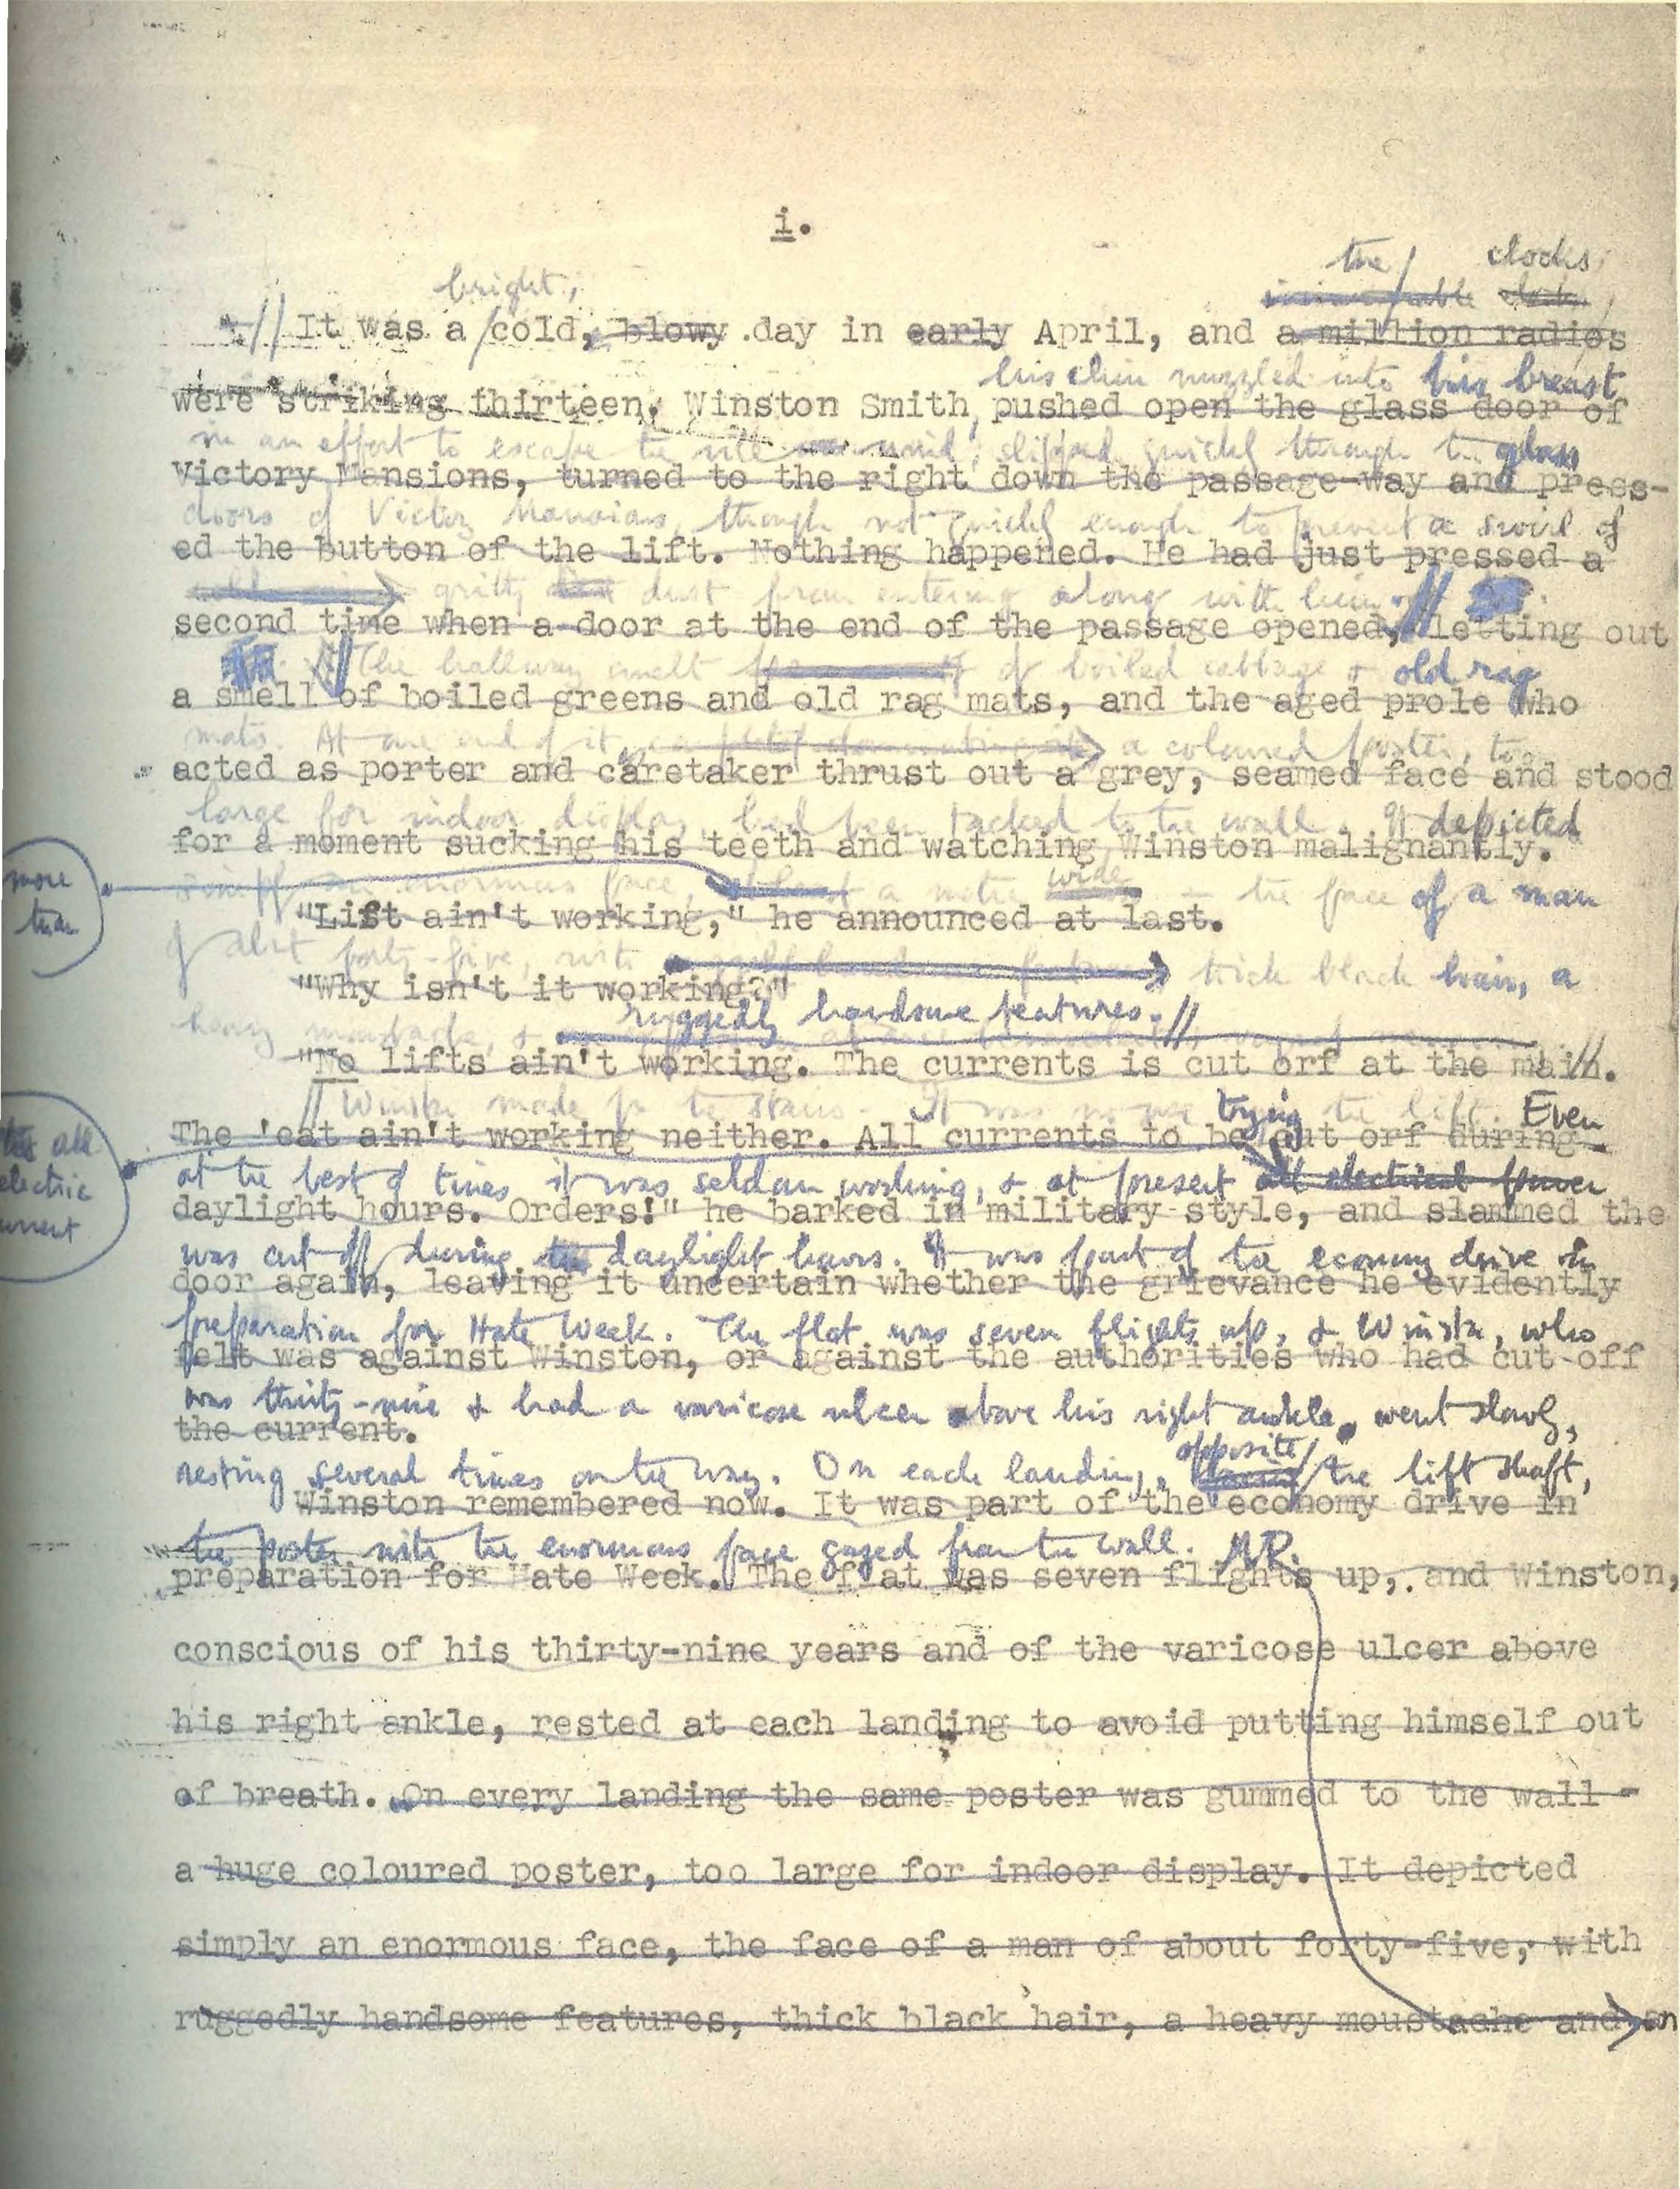 i.
the clocks
bright,
It was a cold, blowy day in early April, and a million radios
his chin nuzzled into his breast
were striking thirteen. Winston Smith, pushed open the glass door of
in an effort to escape the vile wind, slipped quickly through the glass
Victory Mansions, turned to the right down the passage-way and press-
doors of Victory Mansions, though not quickly enough to prevent a swirl of
ed the button of the lift. Nothing happened. He had just pressed a
gritty dust from entering along with him.
second time when a door at the end of the passage opened, letting out
The hallway smelt of boiled cabbage & old rag
a smell of boiled greens and old rag mats, and the aged prole who
mats. At one end of it a coloured poster, too
acted as porter and caretaker thrust out a grey, seamed face and stood
large for indoor display, had been tacked to the wall. It depicted
for a moment sucking his teeth and watching Winston malignantly.
more
than
simply an enormous face, a metre wide - the face of a man
"Lift ain't working," he announced at last.
of abt forty-five, with thick black hair, a
"Why isn't it working?"
ruggedly handsome features.
heavy moustache, &
"No lifts ain't working. The currents is cut orf at the main.
Winston made for the stairs. It was no use trying the lift. Even
The 'eat ain't working neither. All currents to be cut orf during
all
electric
current
at the best of times it was seldom working, & at present all electrical power
daylight hours. Orders!" he barked in military style, and slammed the
was cut off during the daylight hours. It was part of the economy drive in
door again, leaving it uncertain whether the grievance he evidently
preparation for Hate Week. The flat was seven flights up, & Winston, who
felt was against Winston, or against the authorities who had cut off
was thirty-nine & had a varicose ulcer above his right ankle, went slowly,
the current.
opposite
resting several times on the way. On each landing, the lift shaft,
Winston remembered now. It was part of the economy drive in
the poster with the enormous face gazed from the wall.
preparation for Hate Week. The flat was seven flights up, and Winston,
conscious of his thirty-nine years and of the varicose ulcer above
his right ankle, rested at each landing to avoid putting himself out
of breath. On every landing the same poster was gummed to the wall -
a huge coloured poster, too large for indoor display. It depicted
simply an enormous face, the face of a man of about forty-five, with
ruggedly handsome features, thick black hair, a heavy moustache and an